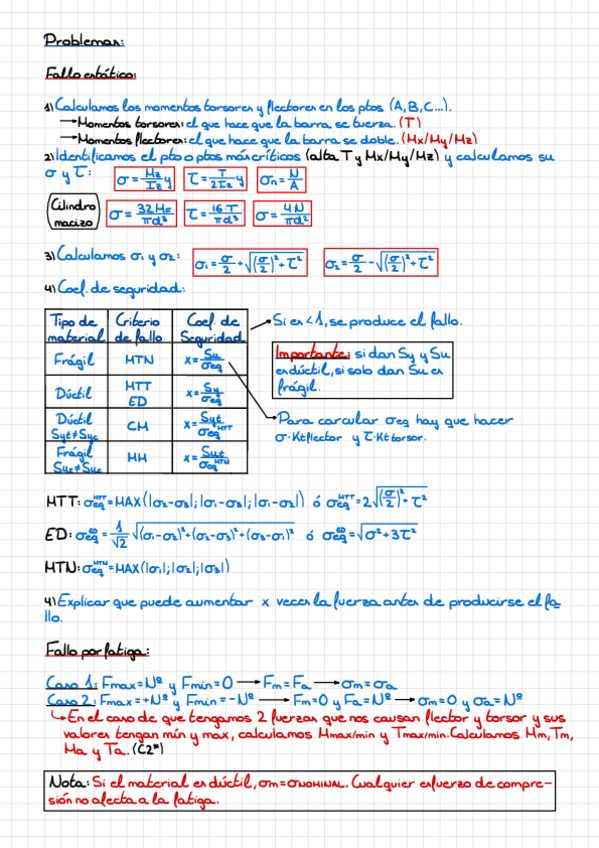 Problemas:
Fallo estático:
1) Calculamos los momentos torsores y flectores en los ptos (A, B, C...).
→ Momentos torsores: el que hace que la barra se tuerza. (T)
→ Momentos flectores: el que hace que la barra se doble. (Mx/My/Mz)
2) Identificamos el pto o ptos más críticos (alta T y Mx/My/Mz) y calculamos su
σ y τ: σ = Mz/Iz y τ = T/2Iz y σn = N/A
Cilindro macizo σ = 32Mf/πd³ τ = 16T/πd³ σ = 4N/πd²
3) Calculamos σ1 y σ2: σ1 = σ/2 + √((σ/2)² + τ²) σ2 = σ/2 - √((σ/2)² + τ²)
4) Coef. de seguridad:
Tipo de material Criterio de fallo Coef. de Seguridad
Frágil MTN x = Su/σeq
Dúctil MTT ED x = Sy/σeq
Dúctil Syt≠Syc CM x = Syt/σeq MTT
Frágil Sut≠Suc MM x = Sut/σeq MTN
→ Si es <1, se produce el fallo.
Importante: si dan Sy y Su
es dúctil, si solo dan Su es
frágil.
→ Para carcular σeq hay que hacer
σ·Ktflector y τ·Kttorsor.
MTT: σeq MTT = MAX(|σ2-σ3|; |σ1-σ3|; |σ1-σ2|) ó σeq MTT = 2√((σ/2)² + τ²)
ED: σeq ED = 1/√2 √((σ1-σ2)² + (σ2-σ3)² + (σ3-σ1)²) ó σeq ED = √(σ² + 3τ²)
MTN: σeq MTN = MAX(|σ1|; |σ2|; |σ3|)
4) Explicar que puede aumentar x veces la fuerza antes de producirse el fa-
llo.
Fallo por fatiga:
Caso 1: Fmax = Nº y Fmin = 0 → Fm = Fa → σm = σa
Caso 2: Fmax = +Nº y Fmin = -Nº → Fm = 0 y Fa = Nº → σm = 0 y σa = Nº
↳ En el caso de que tengamos 2 fuerzas que nos causan flector y torsor y sus
valores tengan mín y max, calculamos Mmax/min y Tmax/min. Calculamos Mm, Tm,
Ma y Ta. (C2*)
Nota: Si el material es dúctil, σm = σNOMINAL. Cualquier esfuerzo de compre-
sión no afecta a la fatiga.